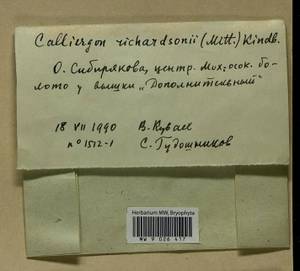 Calliergon richardsonii (Mitt.) Kindb.
О. Сибирякова, центр. мох.-осок. бо-
лото у вышки „Дополнительный"
18 VII 1990 В. Кувает
n° 1512-1 С. Гудошников
Herbarium MW, Bryophyta
MW 9 026 417